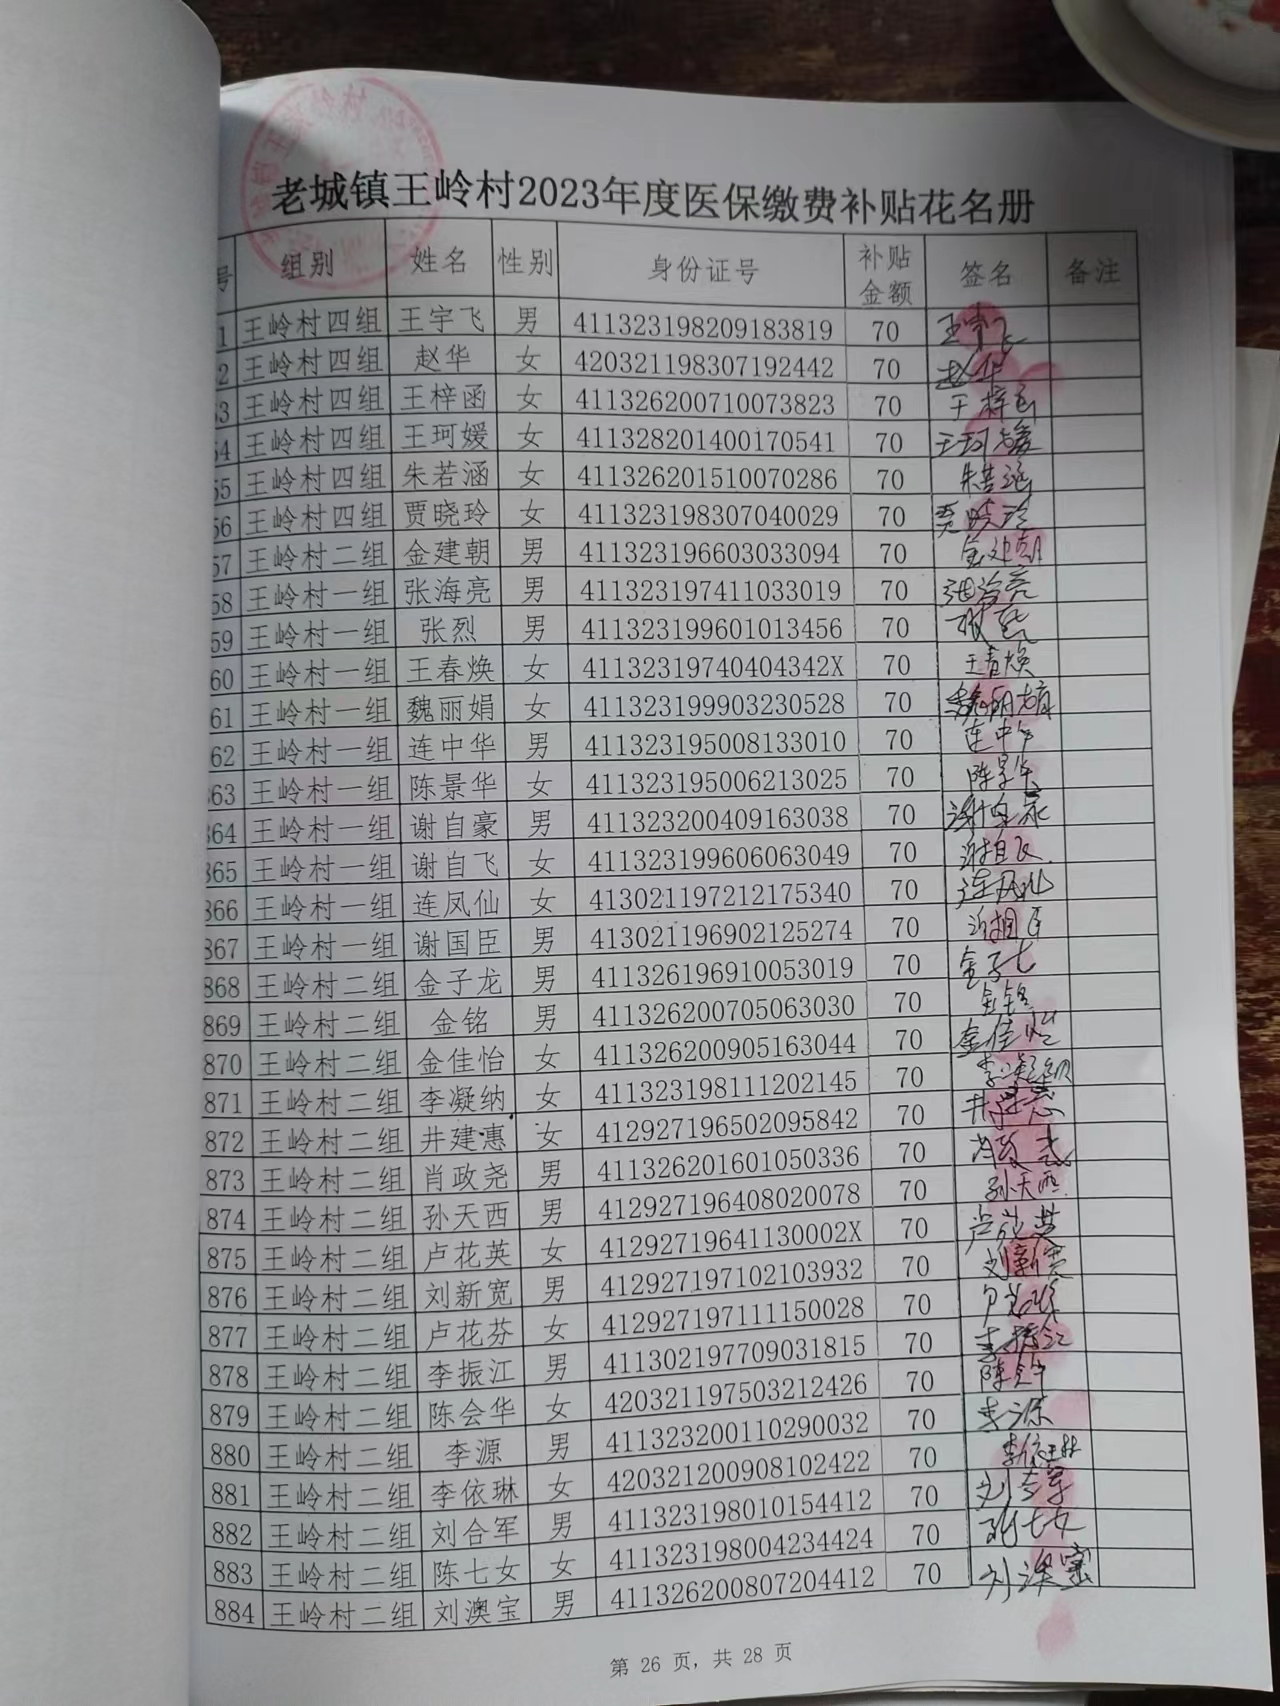 老城镇王岭村2023年度医保缴费补贴花名册
号 组别 姓名 性别 身份证号 补贴金额 签名 备注
1 王岭村四组 王宇飞 男 411323198209183819 70 王宇飞
2 王岭村四组 赵华 女 420321198307192442 70 赵华
53 王岭村四组 王梓函 女 411326200710073823 70 王梓函
54 王岭村四组 王珂媛 女 411328201400170541 70 王珂媛
55 王岭村四组 朱若涵 女 411326201510070286 70 朱若涵
56 王岭村四组 贾晓玲 女 411323198307040029 70 贾晓玲
57 王岭村二组 金建朝 男 411323196603033094 70 金建朝
58 王岭村一组 张海亮 男 411323197411033019 70 张海亮
59 王岭村一组 张烈 男 411323199601013456 70 张烈
60 王岭村一组 王春焕 女 41132319740404342X 70 王春焕
61 王岭村一组 魏丽娟 女 411323199903230528 70 魏丽娟
62 王岭村一组 连中华 男 411323195008133010 70 连中华
863 王岭村一组 陈景华 女 411323195006213025 70 陈景华
864 王岭村一组 谢自豪 男 411323200409163038 70
865 王岭村一组 谢自飞 女 411323199606063049 70 谢自飞
866 王岭村一组 连凤仙 女 413021197212175340 70 连凤仙
867 王岭村一组 谢国臣 男 413021196902125274 70
868 王岭村二组 金子龙 男 411326196910053019 70 金子龙
869 王岭村二组 金铭 男 411326200705063030 70 金铭
870 王岭村二组 金佳怡 女 411326200905163044 70 金佳怡
871 王岭村二组 李凝纳 女 411323198111202145 70 李凝纳
872 王岭村二组 井建惠 女 412927196502095842 70 井建惠
873 王岭村二组 肖政尧 男 411326201601050336 70 肖政尧
874 王岭村二组 孙天西 男 412927196408020078 70 孙天西
875 王岭村二组 卢花英 女 41292719641130002X 70 卢花英
876 王岭村二组 刘新宽 男 412927197102103932 70 刘新宽
877 王岭村二组 卢花芬 女 412927197111150028 70 卢花芬
878 王岭村二组 李振江 男 411302197709031815 70 李振江
879 王岭村二组 陈会华 女 420321197503212426 70 陈会华
880 王岭村二组 李源 男 411323200110290032 70 李源
881 王岭村二组 李依琳 女 420321200908102422 70 李依琳
882 王岭村二组 刘合军 男 411323198010154412 70 刘合军
883 王岭村二组 陈七女 女 411323198004234424 70 陈七女
884 王岭村二组 刘澳宝 男 411326200807204412 70 刘澳宝
第 26 页，共 28 页